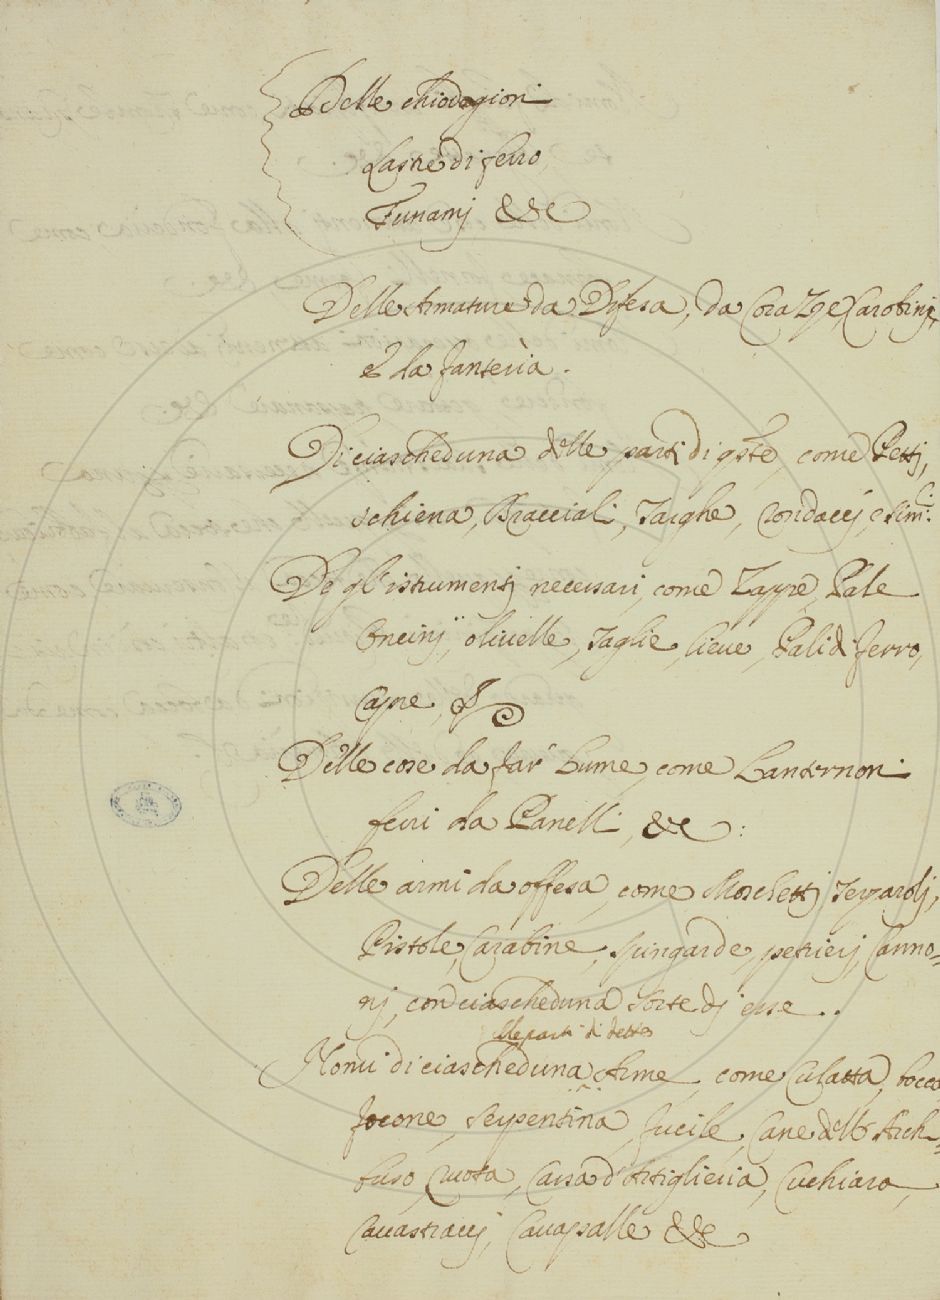 Delle chiodagioni
Lastre di ferro,
Funamj &&c
Delle Armature da Difesa, da Corazze, Carabinj,
e da fanteria.
Di ciascheduna delle parti di qste, come Pettj,
schiena, Bracciali, Targhe, e simli:
De gl'istrumentj necessari, come Zappe, Pale
Oncinj, olivelle, Taglie, lieve, Pali di ferro,
Capre, &
Delle cose da far Lume, come Lanternoni
ferri da Panelli, &c:
Delle armi da offesa, come Moschettj, Terzarolj,
Pistole, Carabine, spingarde, petrierj, Canno=
nj, con ciascheduna sorte dj esse..
delle parti di dette
Nomi di ciascheduna Arme, come Culatta, bocca
focone, serpentina, fucile, Cane dell'Arch=
buso, ruota, Cassa d'Artiglieria, Cuchiara,
Cavastraccj, Cavapalle &&c